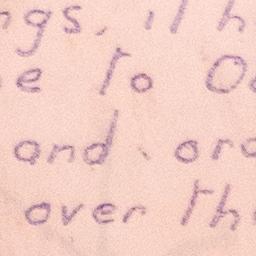 ngs, it h
e to O
and, ora
over th